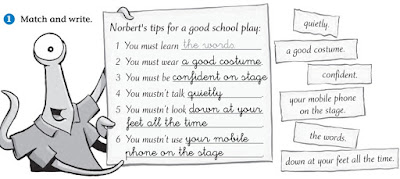 1 Match and write.
Norbert's tips for a good school play:
1 You must learn the words
2 You must wear a good costume
3 You must be confident on stage
4 You mustn't talk quietly
5 You mustn't look down at your
feet all the time
6 You mustn't use your mobile
phone on the stage
quietly.
a good costume.
confident.
your mobile phone
on the stage.
the words.
down at your feet all the time.